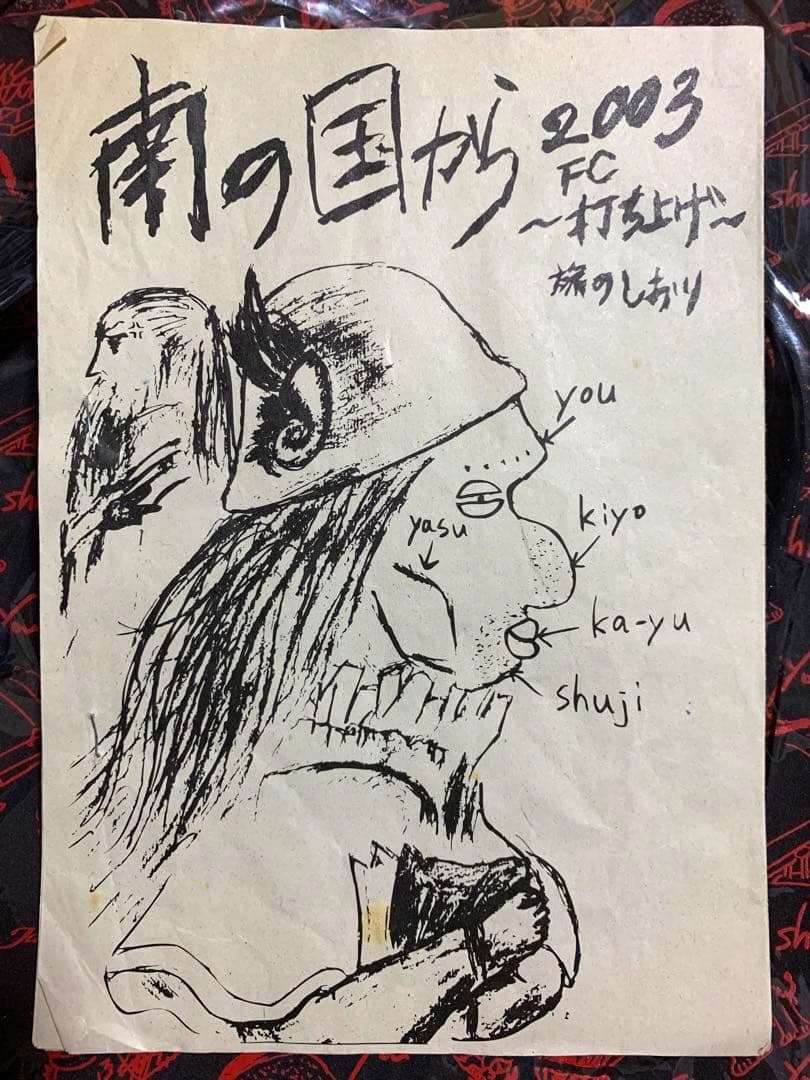 南の国から
2003
FC
～打ち上げ～
旅のしおり
you
kiyo
yasu
ka-yu
shuji